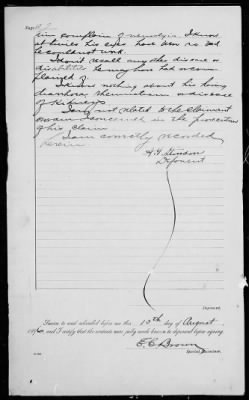 Page
him complain of neuralgia. I know
at times his eyes have been so bad
he couldn't work.
I don't recall any other disease or
disabilities he may have had or com-
plained of.
I know nothing about his having
diarrhoea, rheumatism or disease
of kidneys.
I am not related to the claimant
or am I concerned in the prosecution
of his claim
I am correctly recorded
herein
Deponent
Deponent.
Sworn to and subscribed before me this 10th day of August
and I certify that the contents were fully made known to deponent before signing.
E. C. Brown
Special Examiner.